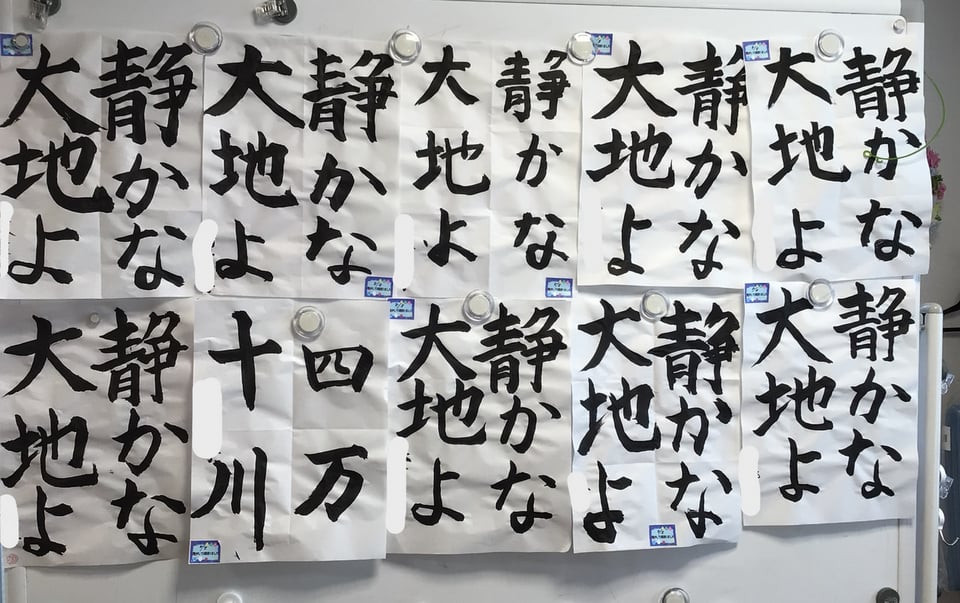 静かな
大地よ
静かな
大地よ
静かな
大地よ
静かな
大地よ
静かな
大地よ
静かな
大地よ
四万
十川
静かな
大地よ
静かな
大地よ
静かな
大地よ